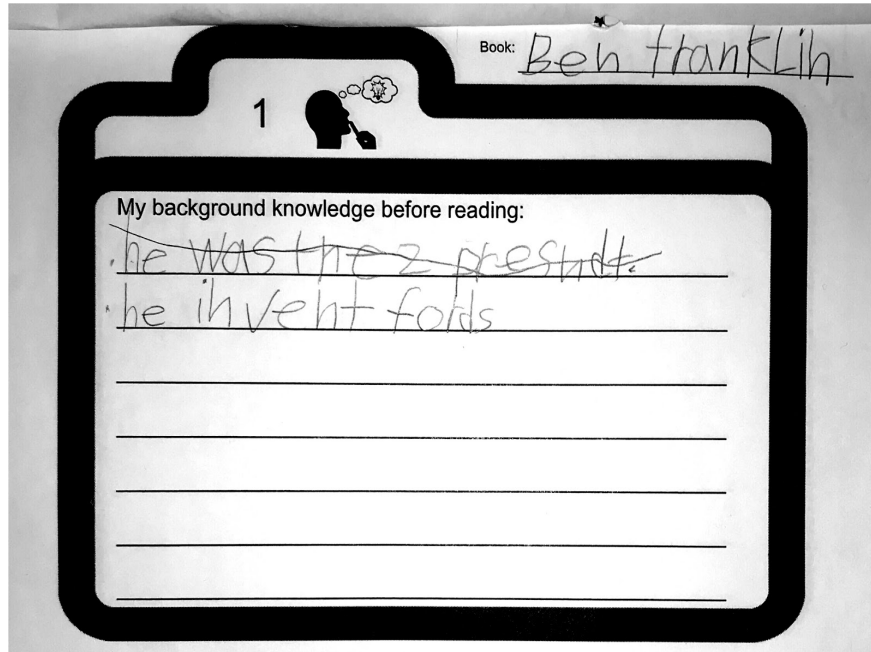 Book: Ben franklin
1
My background knowledge before reading:
.he was the 2 presndt.
.he invent foids